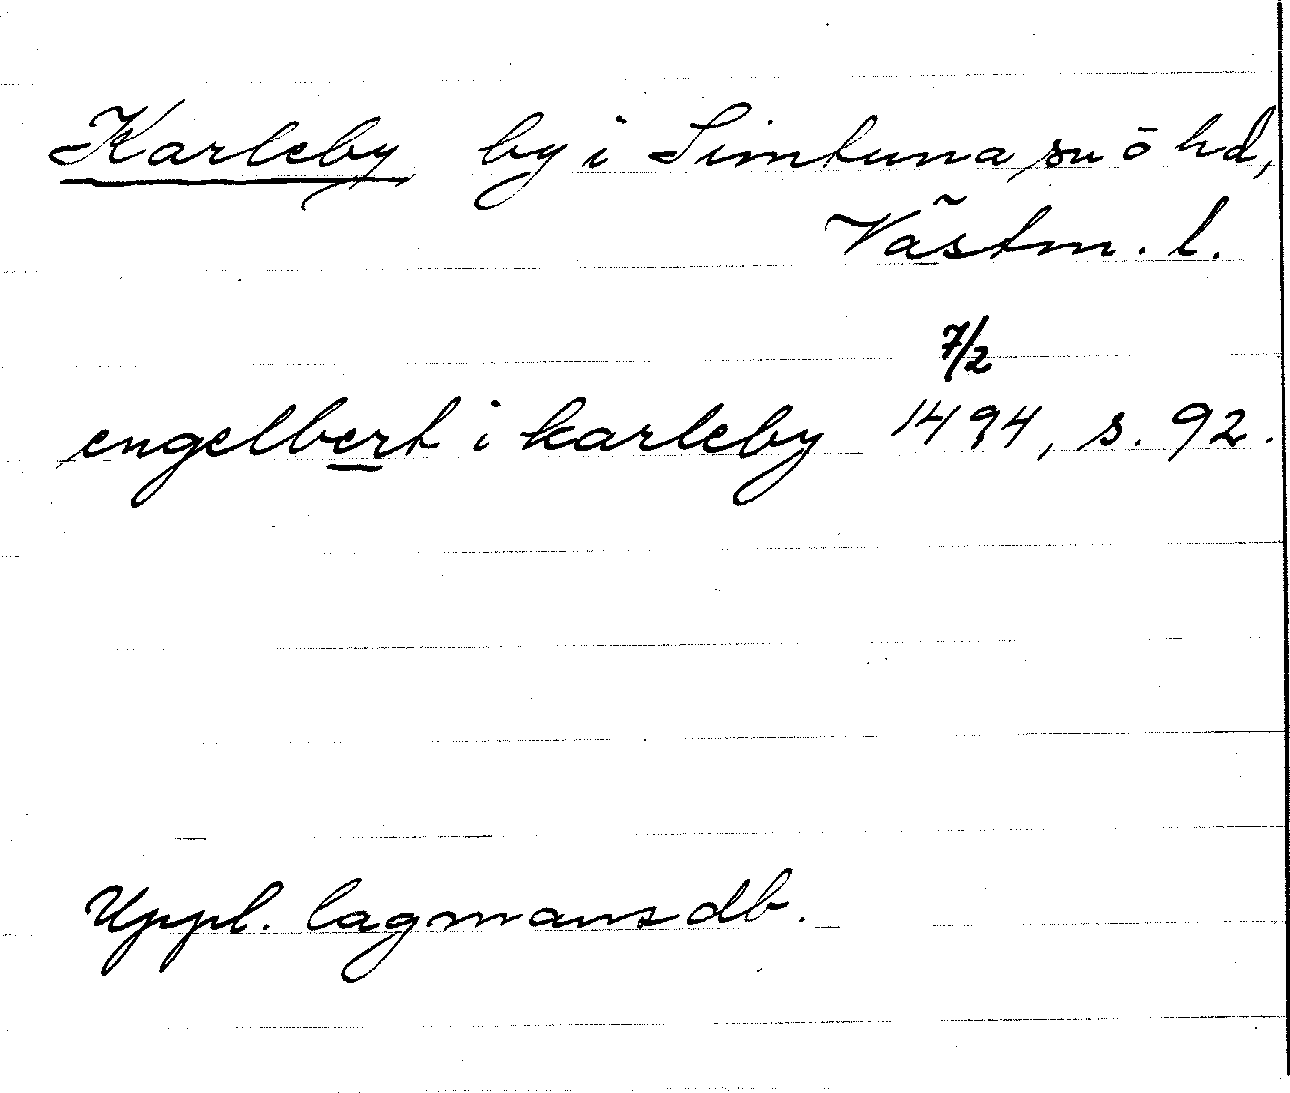 Karleby by i Simtuna sn o hd,
Västm. l.
7/2
engelbert i karleby 1494, s. 92.
Uppl. lagmansdb.